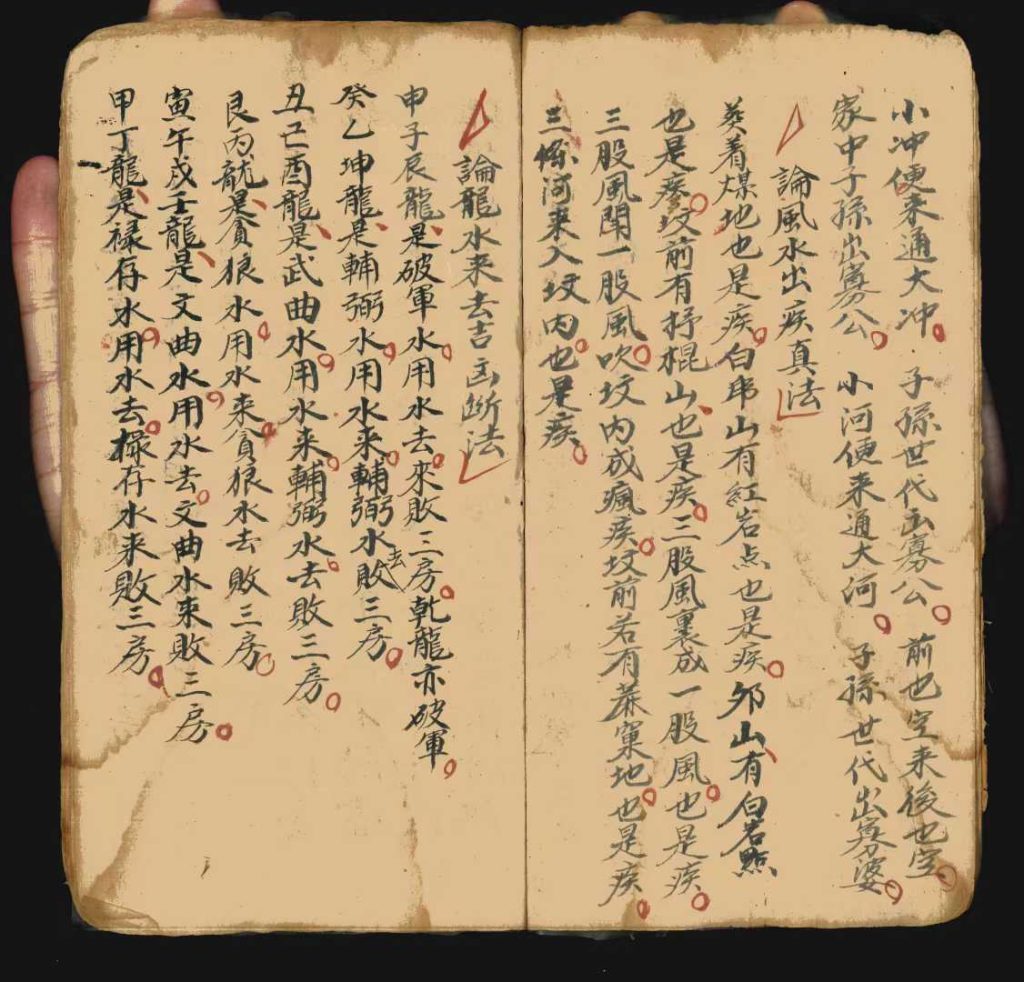 小冲便来通大冲 子孫世代出寡公 前也空来後也空
家中子孫出寡公 小河便来通大河 子孫世代出寡婆
論風水出疾真法
葵着煤地也是疾 白帋山有紅岩点也是疾 外山有白岩點
也是疾 坟前有抒棍山也是疾 三股風裹成一股風也是疾
三股風開一股風吹坟内成瘋疾 坟前若有蔴窠地也是疾
三條河来入坟内也是疾
論龍水来去吉凶断法
申子辰龍是破軍水用水去来敗三房 乾龍亦破軍
癸乙坤龍是輔弼水用水来輔弼水去敗三房
丑巳酉龍是武曲水用水来輔弼水去敗三房
艮丙龍是貪狼水用水来貪狼水去敗三房
寅午戌壬龍是文曲水用水去文曲水来敗三房
甲丁龍是禄存水用水去禄存水来敗三房